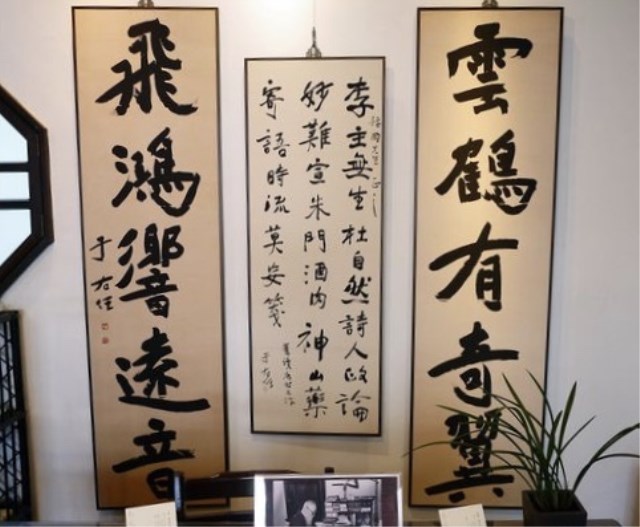 雲鶴有奇翼
李主無生杜自然詩人吟論
妙難宣朱門酒肉神山藥
寄語時流莫妄箋
于右任
飛鴻響遠音
于右任